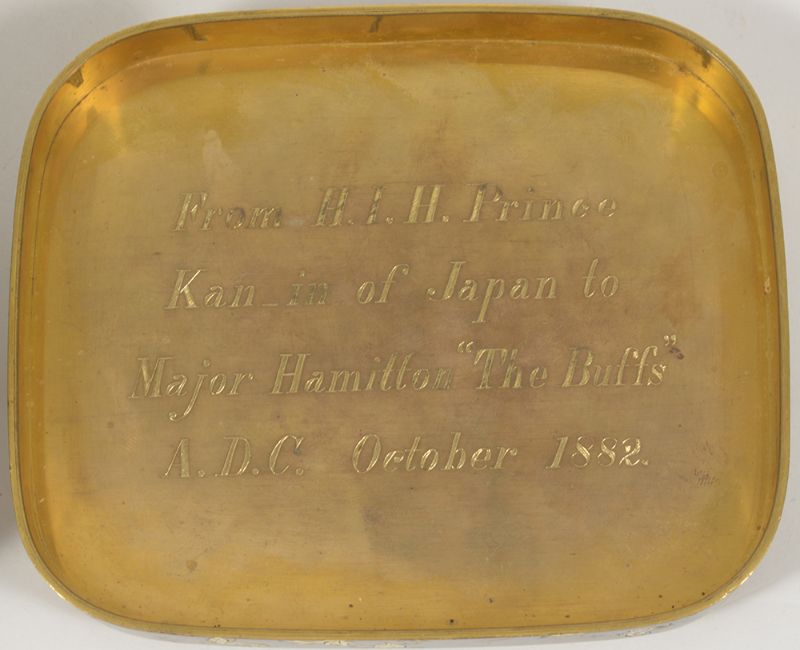 From H.I.H. Prince
Kan-in of Japan to
Major Hamilton "The Buffs"
A.D.C. October 1882.